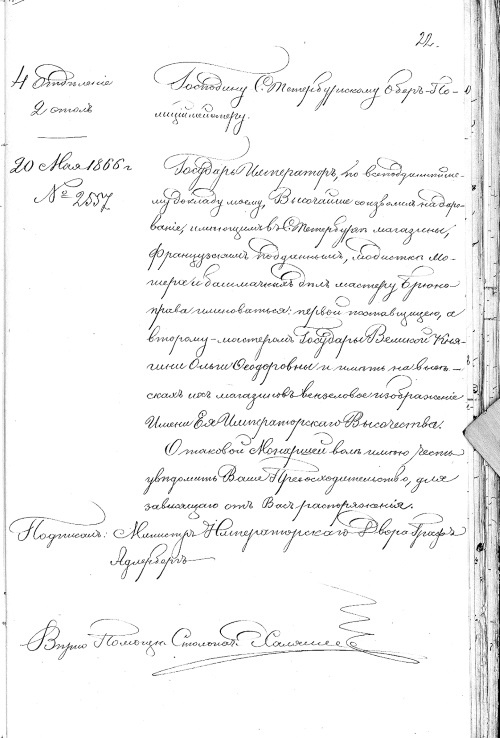 22.
4 Отдѣленіе
2 столъ
Господину С. Петербургскому Оберъ-По-
лицiймейстеру.
20 Мая 1866 г
№ 2557
Государь Императоръ, по всеподданнѣйше-
му докладу моему, Высочайше соизволилъ на даро-
ваніе, имѣющимъ въ С. Петербургѣ магазины,
Французскимъ подданнымъ, модисткѣ Мо-
и башмачныхъ дѣлъ мастеру
права именоваться: первой поставщицею, а
второму-мастеромъ Государыни Великой Кня-
гини Ольги Ѳеодоровны и имѣть на вывѣ-
скахъ ихъ магазиновъ вензеловое изображеніе
Имени Ея Императорскаго Высочества.
О таковой Монаршей волѣ имѣю честь
увѣдомить Ваше Превосходительство, для
зависящаго отъ Васъ распоряженія.
Подписалъ: Министръ Императорскаго Двора Графъ
Адлербергъ
Вѣрно Помощн. Столонач.